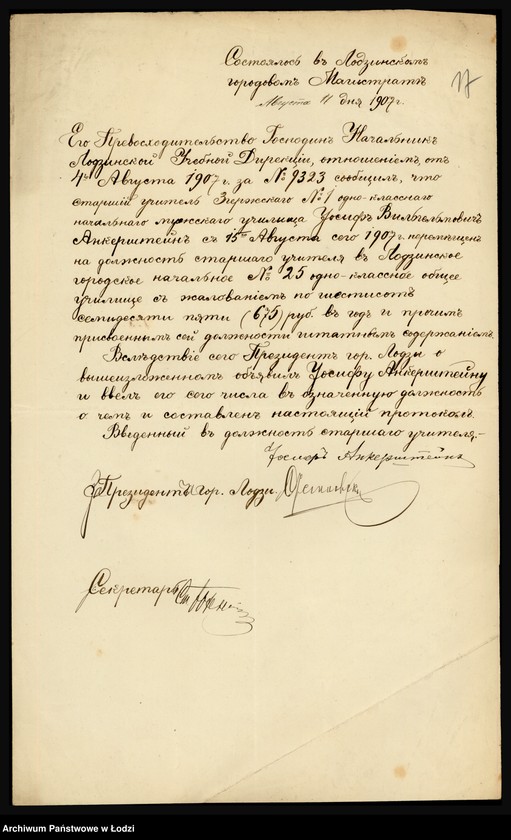 Состоялось въ Лодзинскомъ
городовомъ Магистратѣ
Августа 11 дня 1907 г.
17
Его Превосходительство Господинъ Начальникъ
Лодзинской Учебной Дирекціи, отношеніемъ отъ
4го Августа 1907 г. за № 9323 сообщилъ, что
старшій учитель Згержскаго № 1 одно-класснаго
начальнаго мужскаго училища Іосифъ Вильгельмовичъ
Анкерштейнъ съ 15го Августа сего 1907 г. перемѣщенъ
на должность старшаго учителя въ Лодзинское
городское начальное № 25 одно-классное общее
училище съ жалованіемъ по шестисотъ
семидесяти пяти (675) руб. въ годъ и прочимъ
присвоеннымъ сей должности штатнымъ содержаніемъ.
Вслѣдствіе сего Президентъ гор. Лодзи о
вышеизложенномъ объявилъ Іосифу Анкерштейну
и ввелъ его сего числа въ означенную должность
о чемъ и составленъ настоящій протоколъ.
Введенный въ должность старшаго учителя:-
Іосифъ Анкерштейнъ
Президентъ гор. Лодзи
Секретарь
Archiwum Państwowe w Łodzi